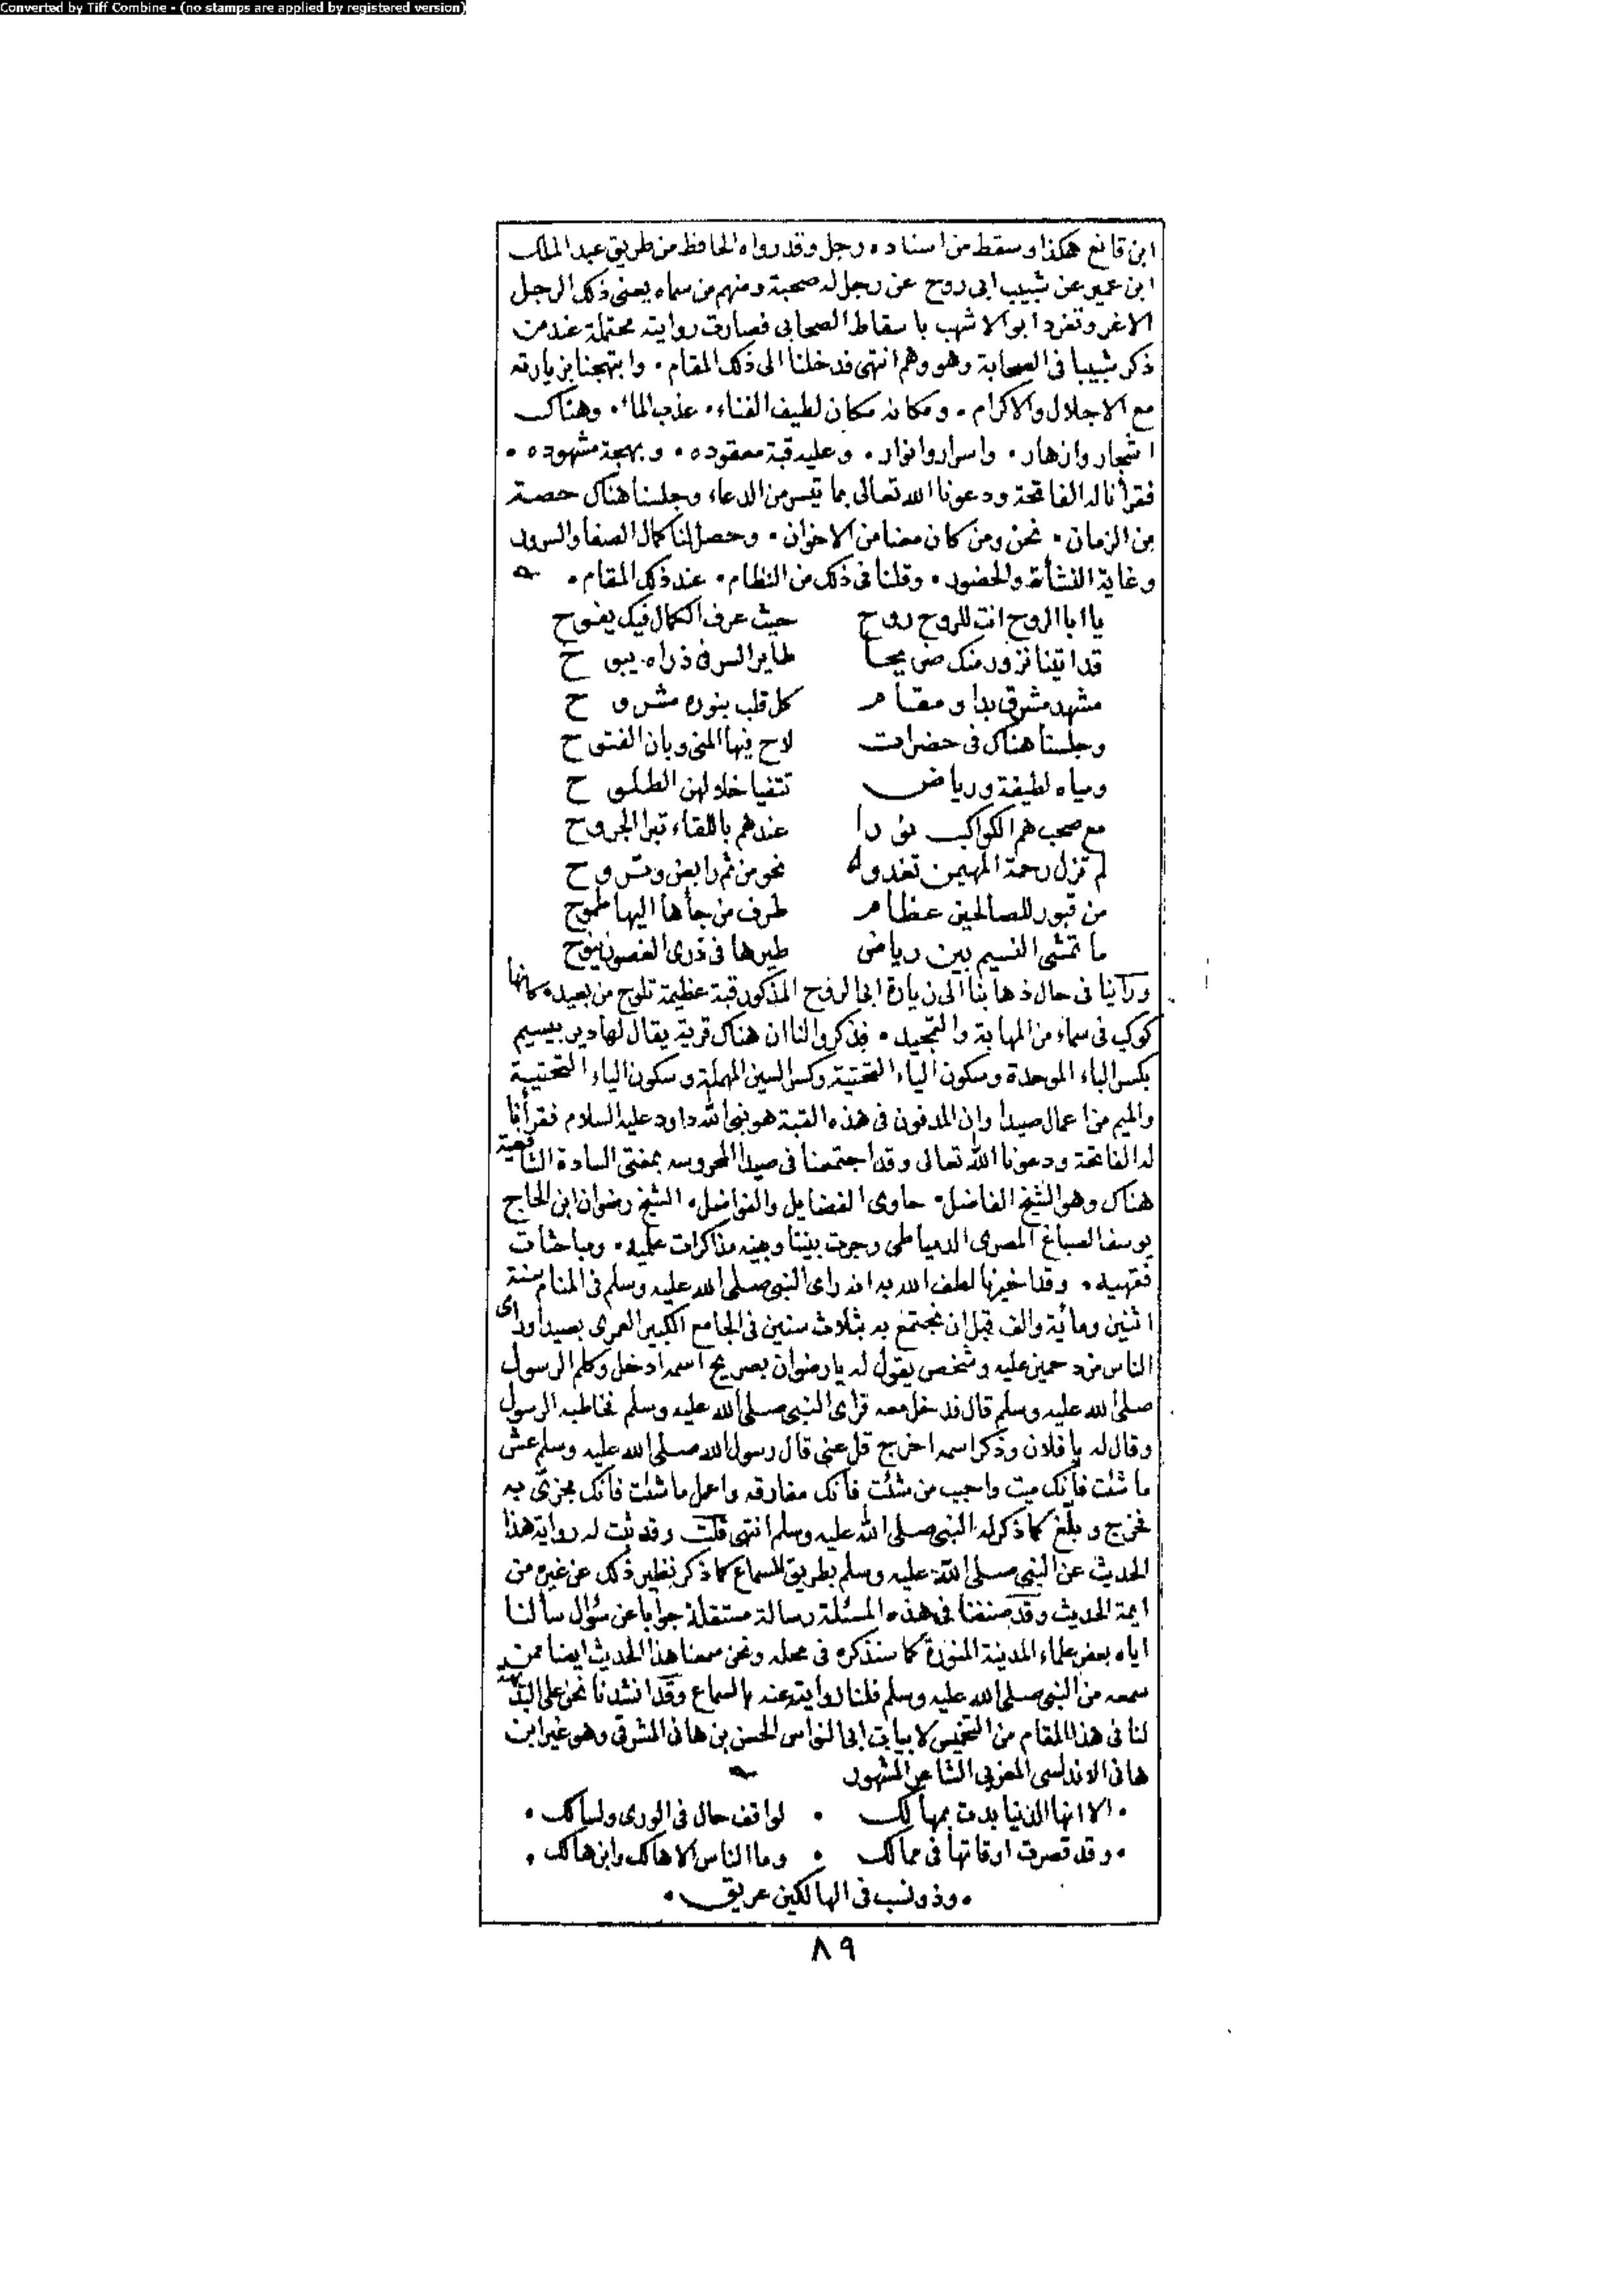 Converted by Tiff Combine - (no stamps are applied by registered version)
ابن قانع هكذا وسقط من اسناده رجل وقد رواه الحافظ من طريق عبد الملك
ابن عمير عن شبيب ابى روح عن رجل له صحبة ومنهم من سماه يعنى ذلك الرجل
الاغر وتفرد ابو الاشهب باسقاط الصحابى فصارت روايته محتملة عند من
ذكر شبيبا فى الصحابة وهو وهم انتهى فدخلنا الى ذلك المقام • وابتهجنا بزيارته
مع الاجلال والاكرام • ومكانه مكان لطيف الفناء • عذب الماء • وهناك
اشجار وازهار • واسرار وانوار • وعليه قبة معقوده • وبهجة مشهوده •
فقرأنا له الفاتحة ودعونا الله تعالى بما تيسر من الدعاء وجلسنا هناك حصة
من الزمان • نحن ومن كان معنا من الاخوان • وحصل لنا كمال الصفا والسرور
وغاية النشأة والحضور • وقلنا فى ذلك من النظام • عند ذلك المقام •
يا ابا الروح انت للروح روح حيث عرف الكمال فيك يفوح
قد اتينا نزور منك ضريحا طاير السر فى ذراه يبوح
مشهد مشرق بدا ومقام كل قلب بنوره مشروح
وجلسنا هناك فى حضرات لاح فيها المنى وبان الفتوح
ومياه لطيفة ورياض تتفيا خلالهن الطلوح
مع صحب هم الكواكب نورا عندهم باللقاء تبرا الجروح
لم تزل رحمة المهيمن تغدو نحو من ثم رابض وتروح
من قبور للصالحين عظام طرف من جاءها اليها طموح
ما تمشى النسيم بين رياض طيرها فى ذرى الغصون ينوح
ورأينا فى حال ذهابنا الى زيارة ابى الروح المذكور قبة عظيمة تلوح من بعيد • كانها
كوكب فى سماء من المهابة والتمجيد • فذكروا لنا ان هناك قرية يقال لها دير بيسيم
بكسر الباء الموحدة وسكون الياء التحتية وكسر السين المهملة وسكون الياء التحتيية
والميم من اعمال صيدا وان المدفون فى هذه القبة هو نبى الله داود عليه السلام فقرأنا
له الفاتحة ودعونا الله تعالى وقد اجتمعنا فى صيدا المحروسه بمفتى السادة الشافعية
هناك وهو الشيخ الفاضل • حاوى الفضايل والفواضل • الشيخ رضوان ابن الحاج
يوسف الصباغ المصرى الدمياطى وجرت بيننا وبينه مذاكرات علميه • ومباحثات
فقهيه • وقد اخبرنا لطف الله به انه راى النبى صلى الله عليه وسلم فى المنام سنة
اثنين ومائة والف قبل ان نجتمع به بثلاث سنين فى الجامع الكبير العمرى بصيدا وراى
الناس مزدحمين عليه وشخص يقول له يا رضوان بصريح اسمه ادخل وكلم الرسول
صلى الله عليه وسلم قال فدخل معه فراى النبى صلى الله عليه وسلم فخاطبه الرسول
وقال له يا فلان وذكر اسمه اخرج قل عنى قال رسول الله صلى الله عليه وسلم عش
ما شئت فانك ميت واحبب من شئت فانك مفارقه واعمل ما شئت فانك مجزى به
فخرج وبلغ كما ذكر له النبى صلى الله عليه وسلم انتهى قلت وقد ثبت له رواية هذا
الحديث عن النبى صلى الله عليه وسلم بطريق السماع كما ذكر نظير ذلك عن غيره من
ايمة الحديث وقد صنفنا فى هذه المسئلة رسالة مستقلة جوابا عن سؤال سألنا
اياه بعض علماء المدينة المنورة كما سنذكره فى محله ونحن سمعنا هذا الحديث ايضا ممن
سمعه من النبى صلى الله عليه وسلم فلنا روايته عنه بالسماع وقد انشدنا نحن على البديهة
لنا فى هذا المقام من التخميس لابيات ابى النواس الحسن بن هانى المشرقى وهو غير ابن
هانى الاندلسى المغربى الشاعر المشهور
• الا انها الدنيا بدت بمهالك • لواقف حال فى الورى ولسالك •
• وقد قصرت اوقاتها فى ممالك • وما الناس الا هالك وابن هالك •
• وذو نسب فى الهالكين عريق •
٨٩